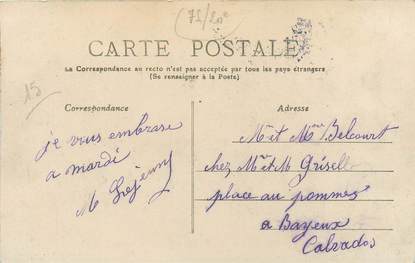 71/20e
CARTE POSTALE
La Correspondance au recto n'est pas acceptée par tous les pays étrangers
(Se renseigner à la Poste)
15
Correspondance
je vous embrasse
a mardi
M
Adresse
Mr et Mme Belcourt
chez Mr et M Griselle
place au pommes
a Bayeux
Calvados